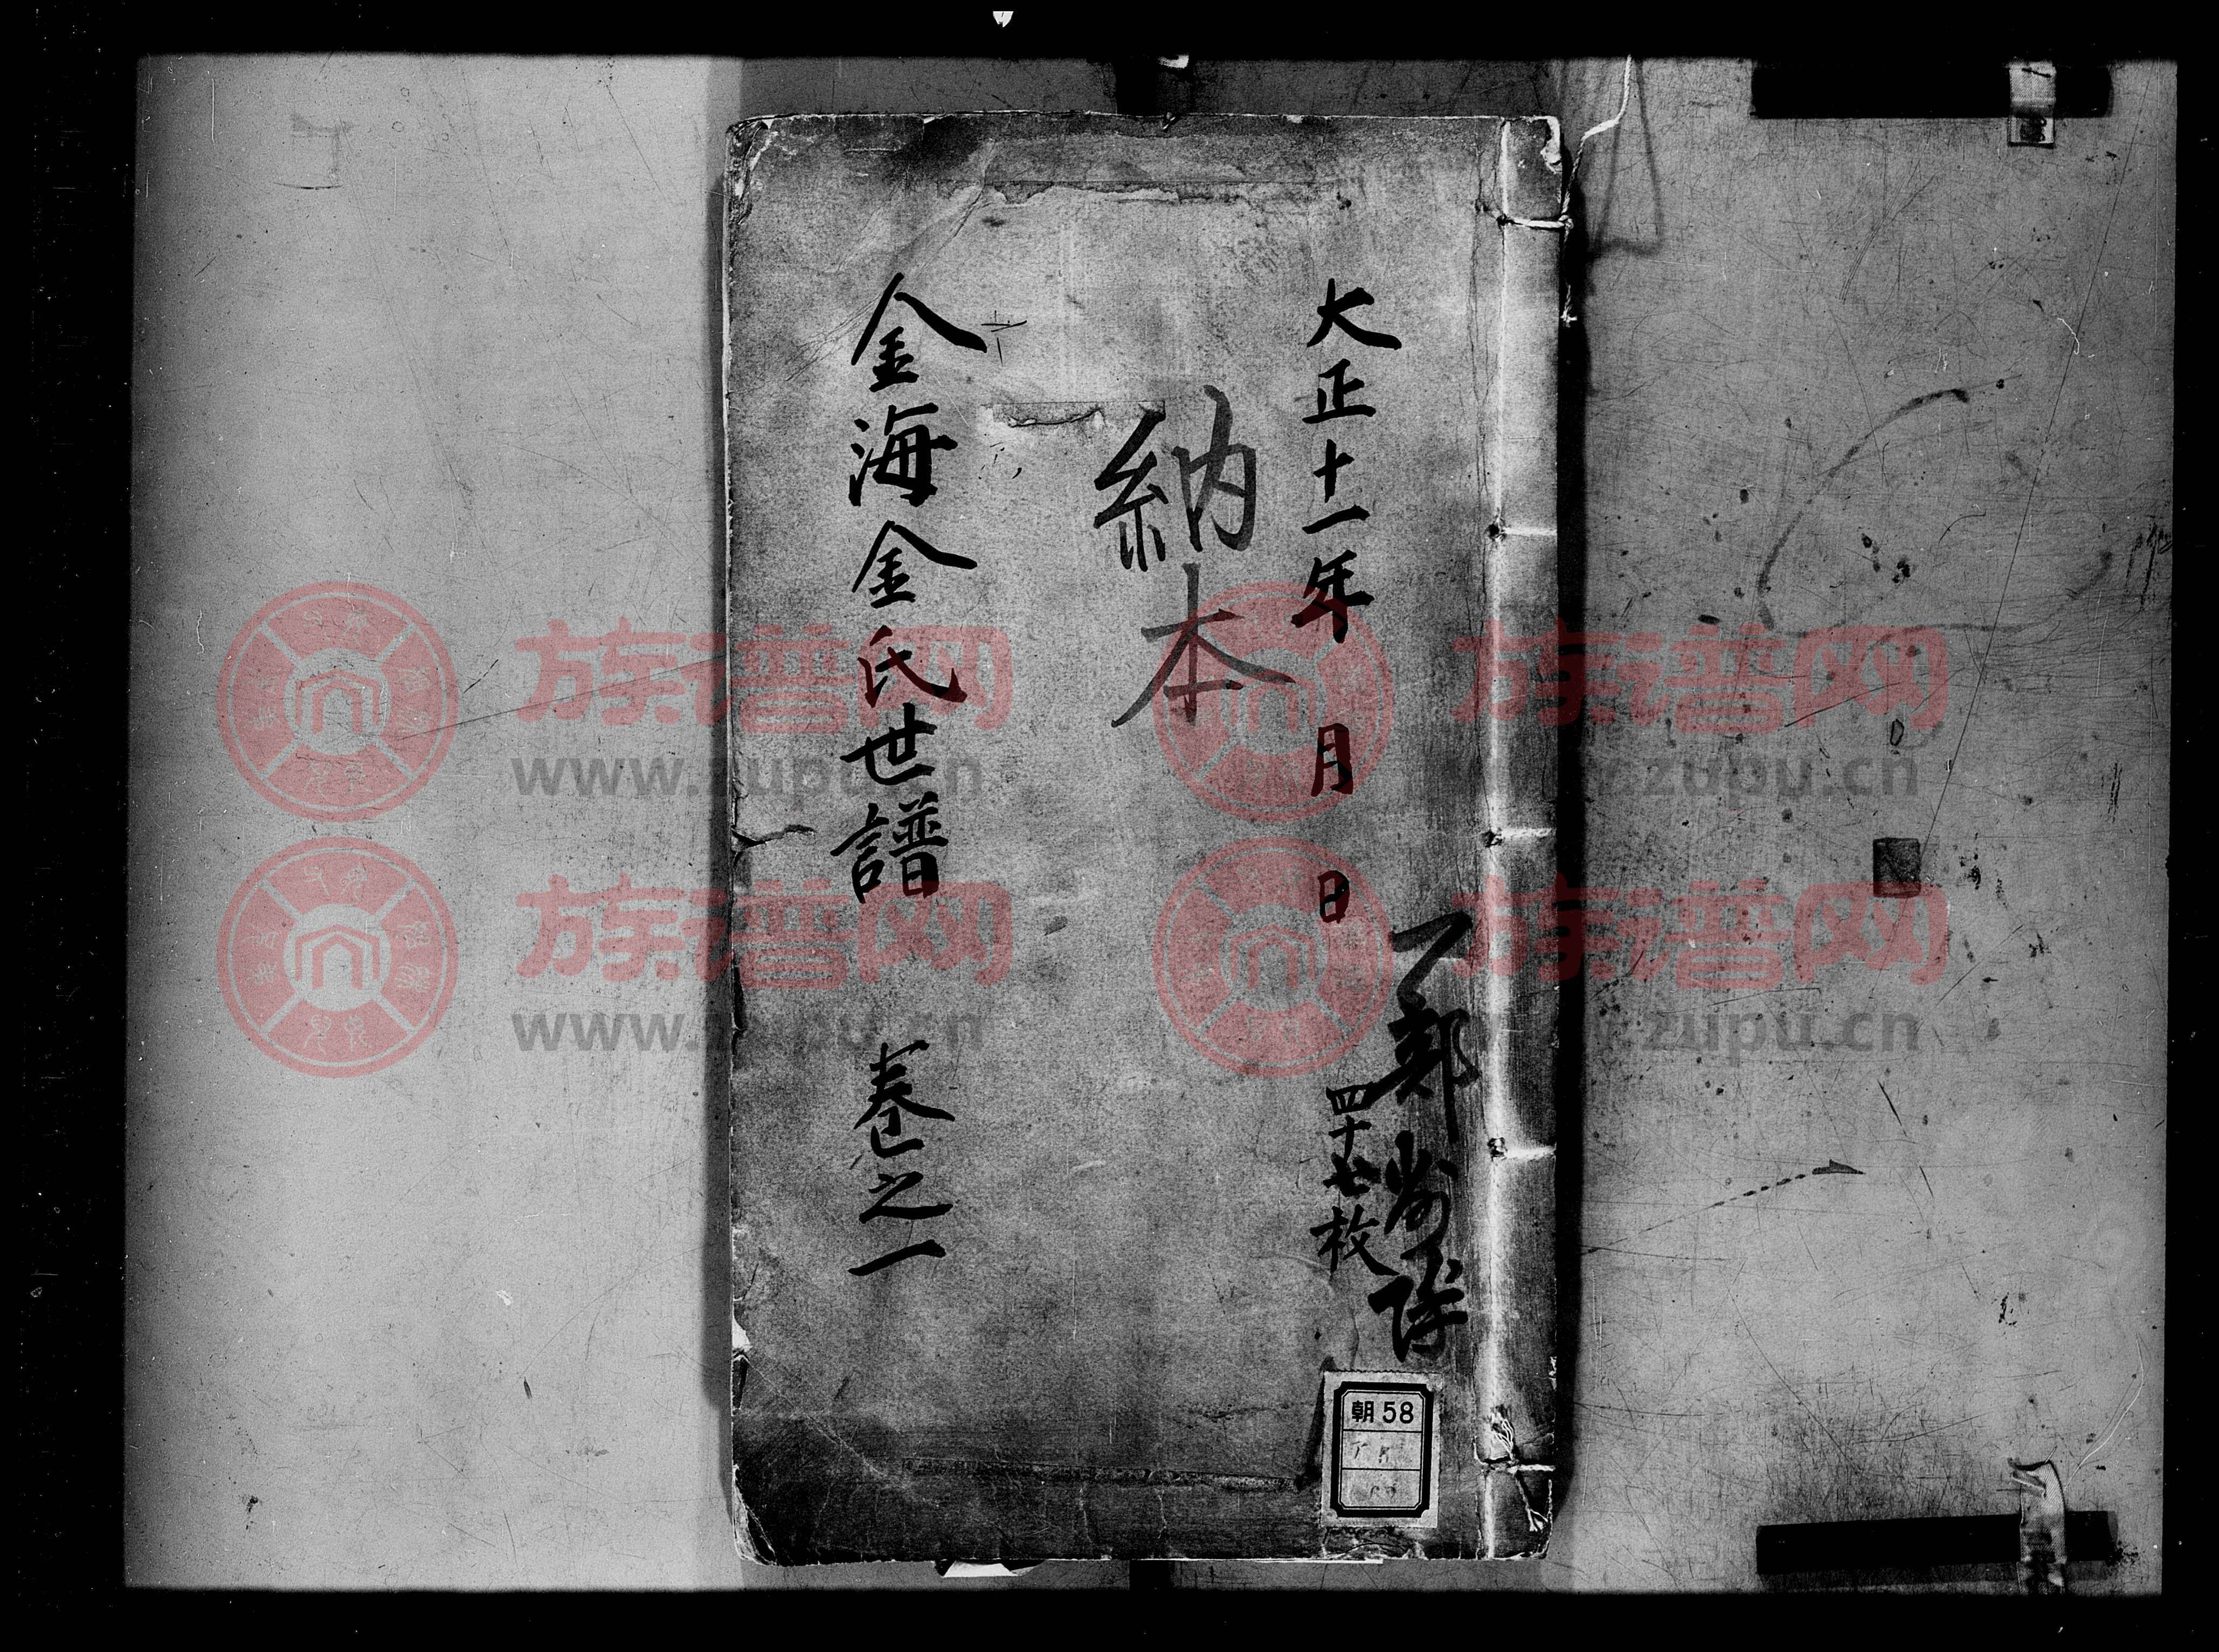 大正十一年 月 日
四十七枚
納本
金海金氏世譜 卷之一
朝58
族谱网
www.zupu.cn
族谱网
www.zupu.cn
族谱网
www.zupu.cn
族谱网
www.zupu.cn